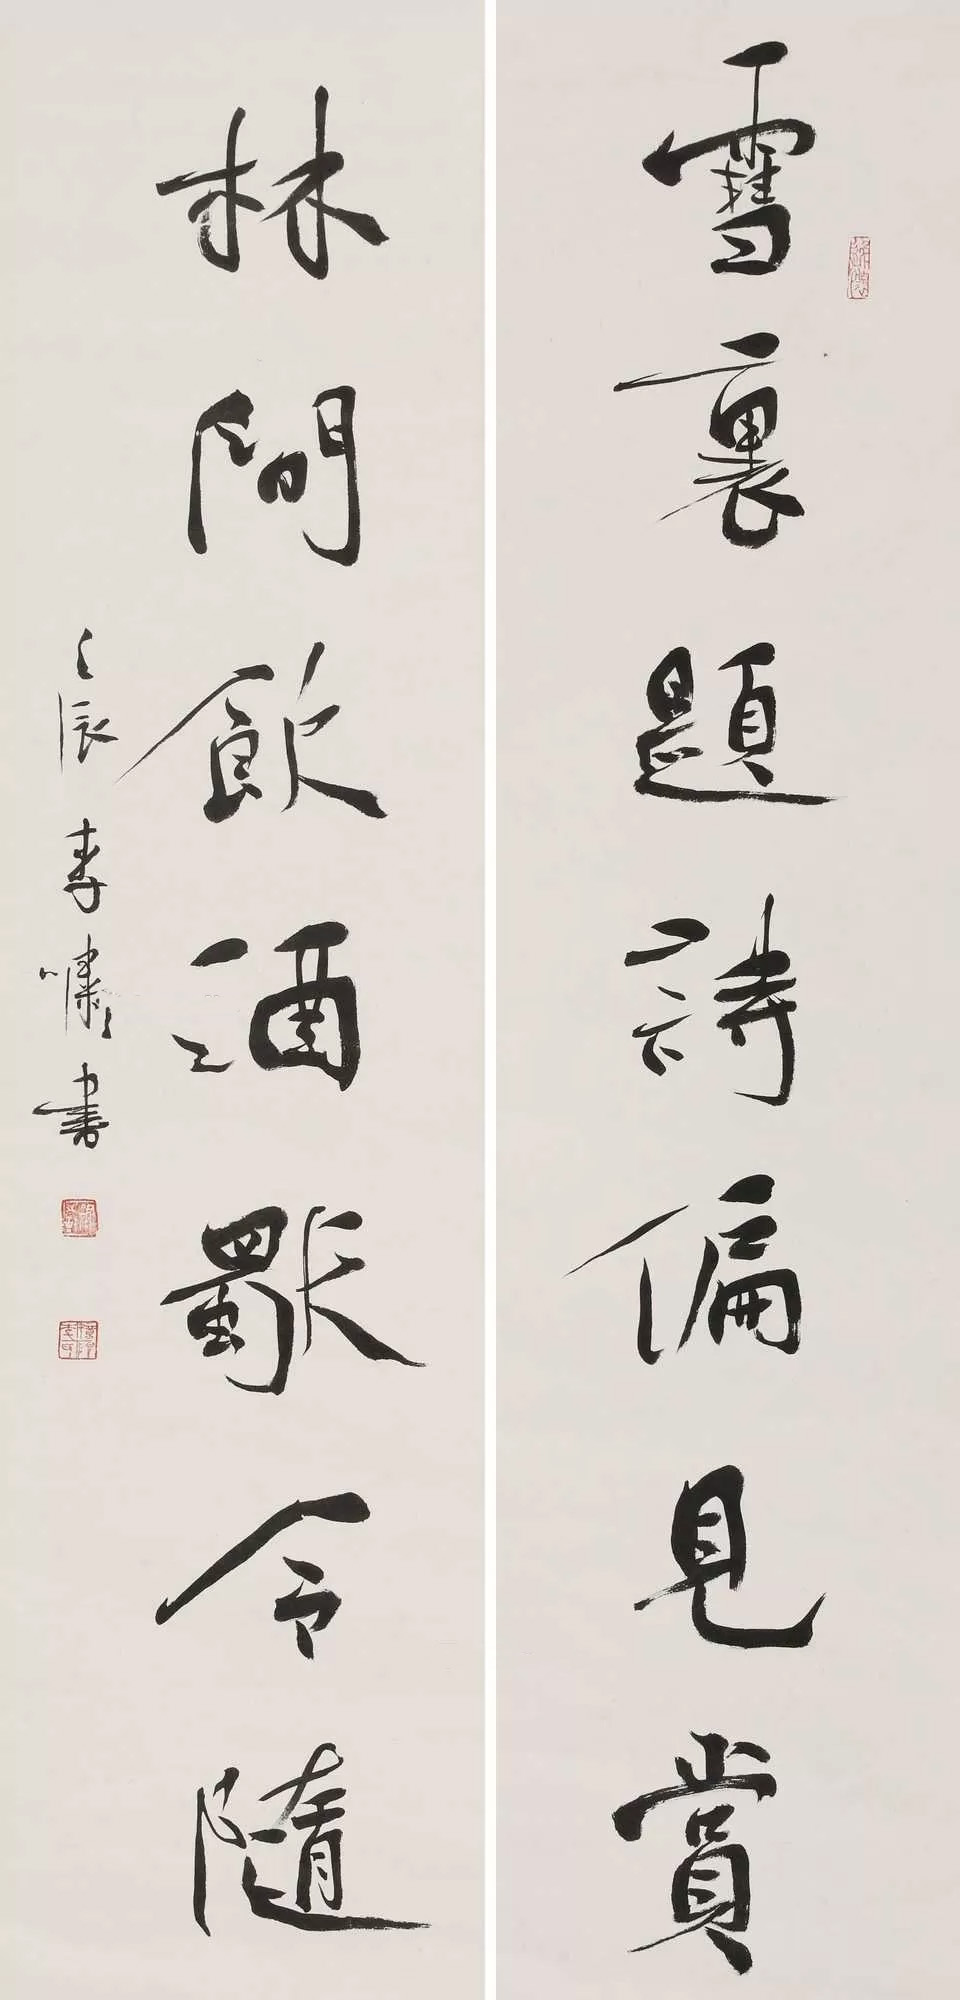 雪裏題詩偏見賞
林間飲酒獨令隨
壬辰李嘯書